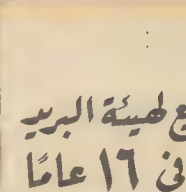 ع لهيئة البريد
فى ١٦ عامًا